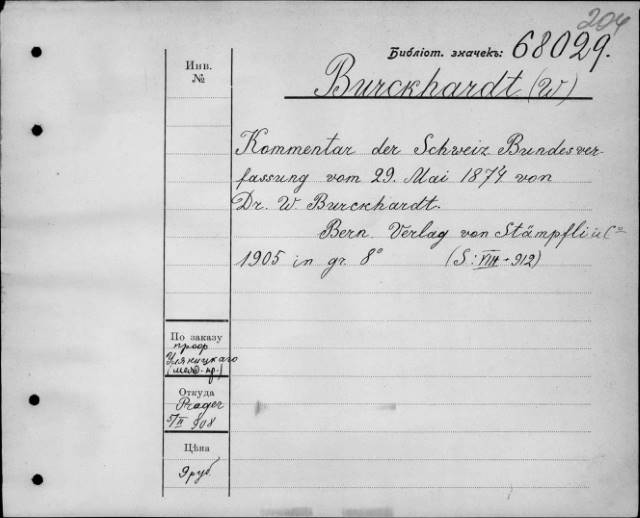 204
Библіот. значекъ: 68029.
Инв.
№
Burckhardt (W)
Kommentar der Schweiz Bundesver-
fassung vom 29. Mai 1874 von
Dr. W Burckhardt.
Bern. Verlag von Stämpfli u Cº
1905 in gr. 8º (S: VIII + 912)
По заказу
проф
Уляницкаго
(меж. пр.)
Откуда
Prager
5/II 908
Цѣна
9 руб.